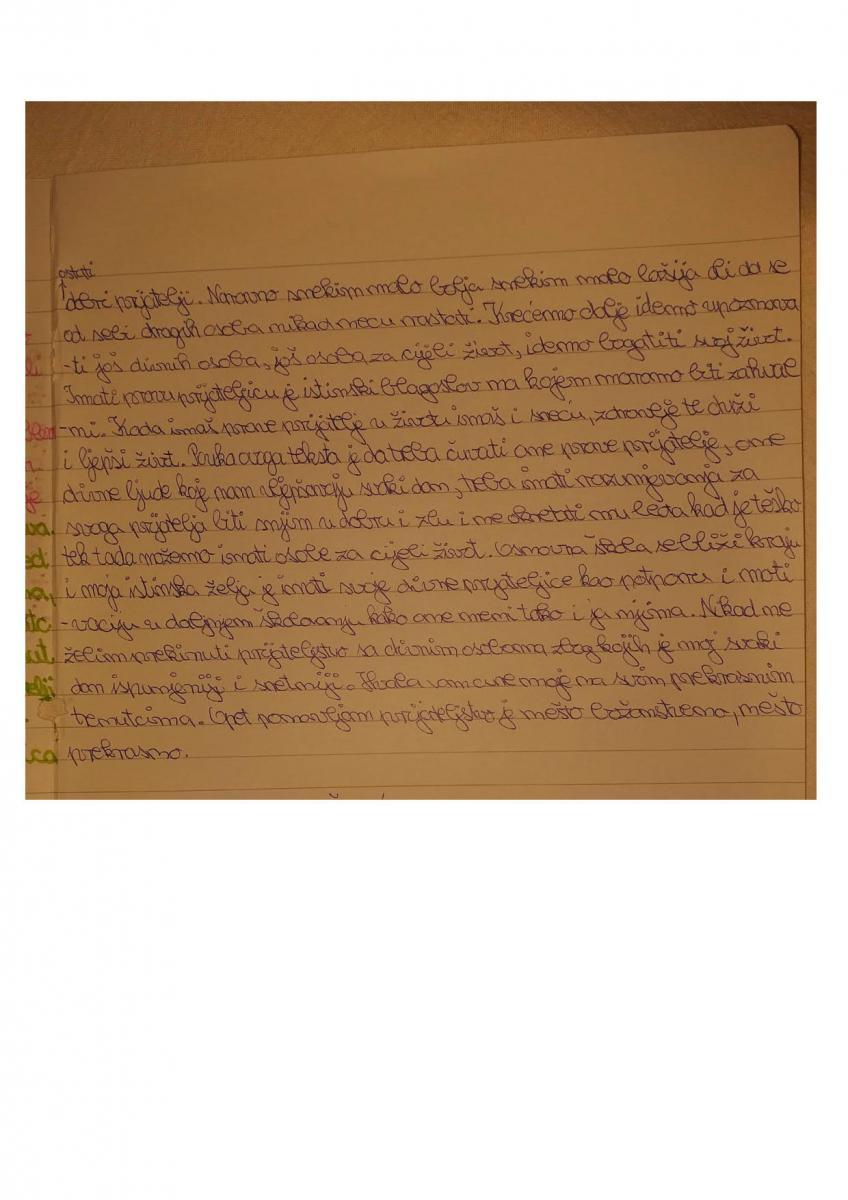 ostati
dobri prijatelji. Naravno s nekim malo bolja s nekim malo lošija ali da se
od sebi dragih osoba nikad neću rastati. Krećemo dalje idemo upoznava
-ti još divnih osoba, još osoba za cijeli život, idemo bogatiti svoj život.
Imati pravu prijateljicu je istinski blagoslov na kojem moramo biti zahval
-ni. Kada imaš prave prijatelje u životu imaš i sreću, zdravlje te duži
i ljepši život. Pouka ovoga teksta je da treba čuvati one prave prijatelje, one
divne ljude koje nam uljepšavaju svaki dan, treba imati razumijevanja za
svoga prijatelja biti s njim u dobru i zlu i ne okretati mu leđa kad je teško
tek tada možemo imati osobe za cijeli život. Osnovna škola se bliži kraju
i moja istinska želja je imati svoje divne prijateljice kao potporu i moti
-vaciju u daljnjem školovanju kako one meni tako i ja njima. Nikad ne
želim prekinuti prijateljstvo sa divnim osobama zbog kojih je moj svaki
dan ispunjeniji i sretniji. Hvala vam cure moje na svim prekrasnim
trenutcima. Opet ponavljam prijateljstvo je nešto božanstveno, nešto
prekrasno.